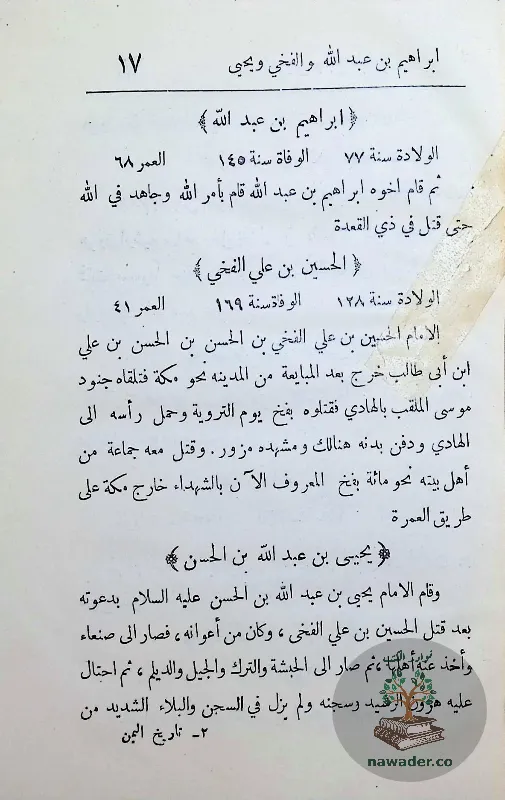 ابراهيم بن عبد الله والفخي ويحيى ١٧
﴿ ابراهيم بن عبد الله ﴾
الولادة سنة ٧٧ الوفاة سنة ١٤٥ العمر ٦٨
ثم قام اخوه ابراهيم بن عبد الله قام بأمر الله وجاهد في الله
حتى قتل في ذي القعدة
﴿ الحسين بن علي الفخي ﴾
الولادة سنة ١٢٨ الوفاة سنة ١٦٩ العمر ٤١
الامام الحسين بن علي الفخي بن الحسن بن الحسن بن علي
ابن أبي طالب خرج بعد المبايعة من المدينه نحو مكة فتلقاه جنود
موسى الملقب بالهادي فقتلوه بفخ يوم التروية وحمل رأسه الى
الهادي ودفن بدنه هنالك ومشهده مزور. وقتل معه جماعة من
أهل بيته نحو مائة بفخ المعروف الآن بالشهداء خارج مكة على
طريق العمرة
﴿ يحيى بن عبد الله بن الحسن ﴾
وقام الامام يحيى بن عبد الله بن الحسن عليه السلام بدعوته
بعد قتل الحسين بن علي الفخى ، وكان من أعوانه ، فصار الى صنعاء
وأخذ عنه أهلها ، ثم صار الى الحبشة والترك والجيل والديلم ، ثم احتال
عليه هرون الرشيد وسجنه ولم يزل في السجن والبلاء الشديد من
٢- تاريخ اليمن
نوادر الكتب
nawader.co